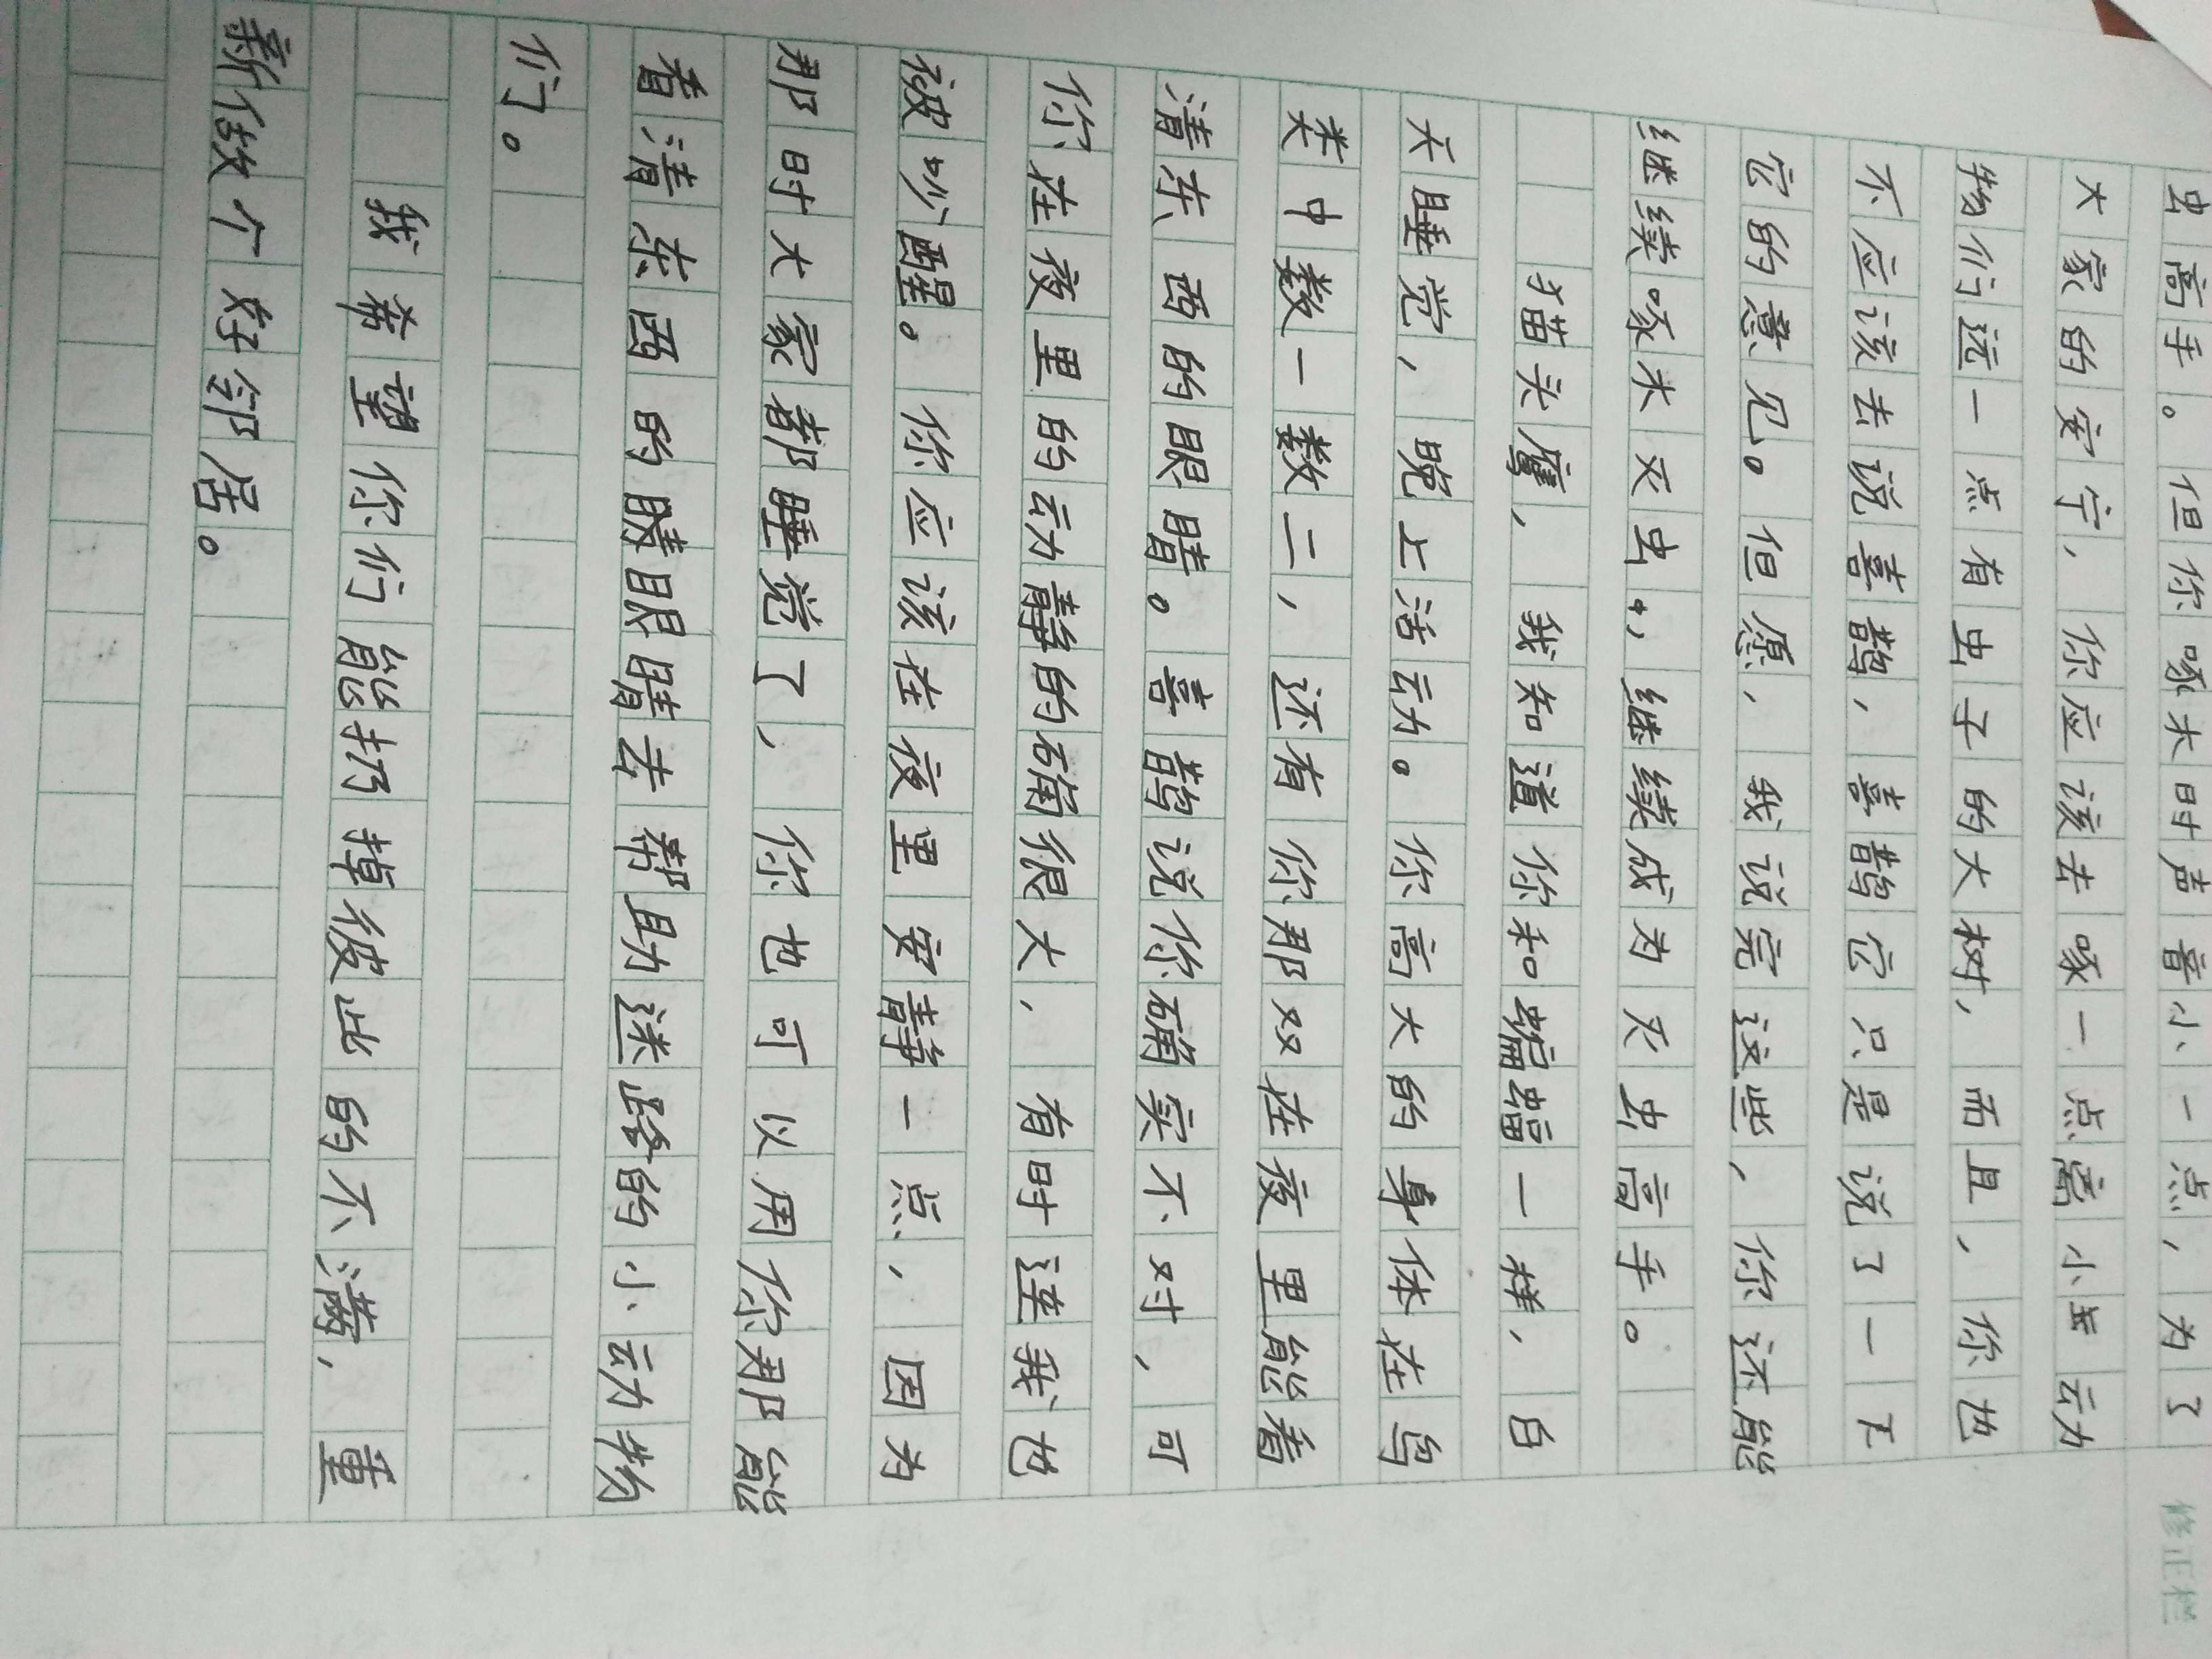 虫高手。但你啄木时声音小一点，为了
大家的安宁，你应该去啄一点离小动
物们远一点有虫子的大树，而且，你也
不应该去说喜鹊，喜鹊它只是说了一下
它的意见。但愿，我说完这些，你还能
继续啄木灭虫，继续成为灭虫高手。
猫头鹰，我知道你和蝙蝠一样，白
天睡觉，晚上活动。你高大的身体在鸟
类中数一数二，还有你那双在夜里能看
清东西的眼睛。喜鹊说你确实不对，可
你在夜里的动静的确很大，有时连我也
被吵醒。你应该在夜里安静一点，因为
那时大家都睡觉了，你也可以用你那能
看清东西的眼睛去帮助迷路的小动物
们。
我希望你们能扔掉彼此的不满，重
新做个好邻居。
修正栏